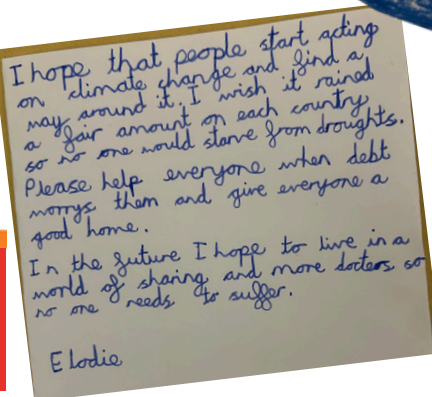 I hope that people start acting
on climate change and find a
way around it. I wish it rained
a fair amount on each country
so no one would starve from droughts.
Please help everyone when debt
worrys them and give everyone a
good home.
In the future I hope to live in a
world of sharing and more docters so
no one needs to suffer.
Elodie